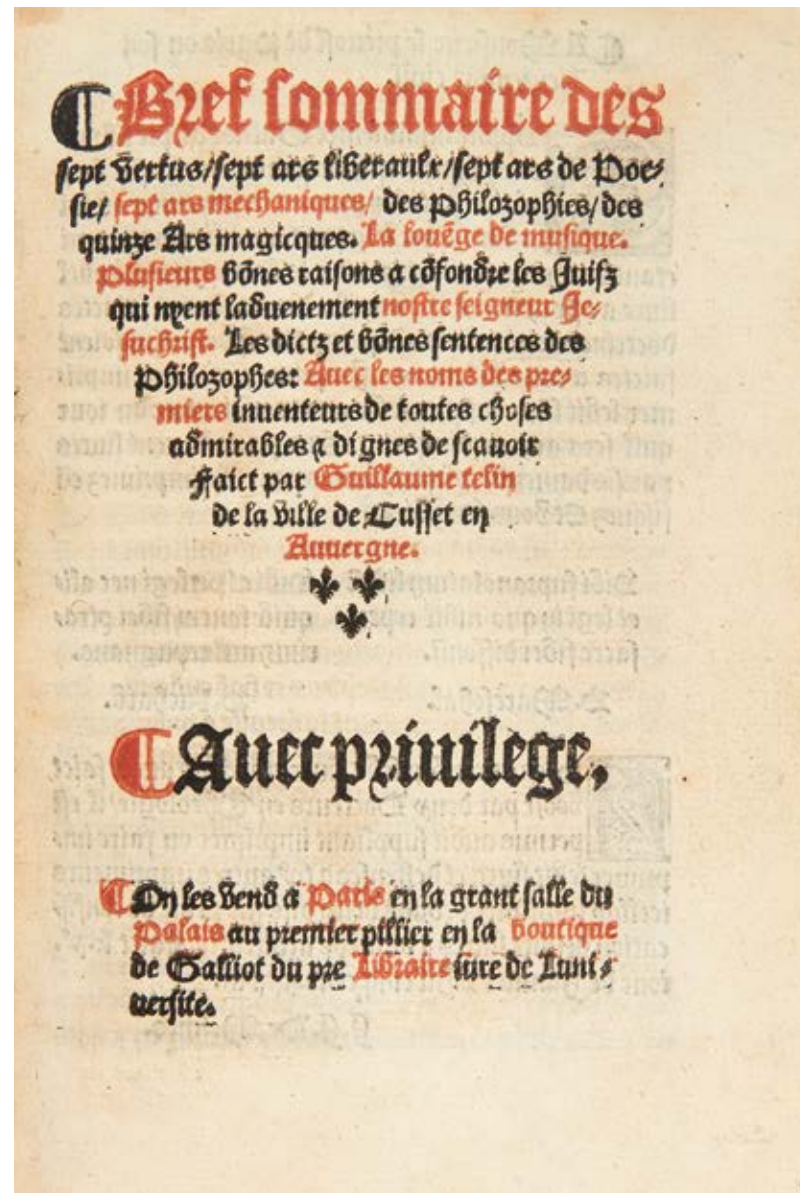 ¶ Bref sommaire des
sept vertus/sept ars liberaulx/sept ars de Poe-
sie/ sept ars mechaniques/ des Philozophies/des
quinze Ars magicques. La louēge de musique.
Plusieurs bōnes raisons a cōfondre les Juifz
qui nyent laduenement nostre seigneur Je-
suchrist. Les dictz et bōnes sentences des
Philozophes: Auec les noms des pre-
miers inuenteurs de toutes choses
admirables & dignes de scauoir
Faict par Guillaume telin
de la ville de Cusset en
Auuergne.
¶ Auec priuilege,
¶ On les vend a Paris en la grant salle du
Palais au premier pillier en la boutique
de Galliot du pre Libraire iure de Luni-
uersite.